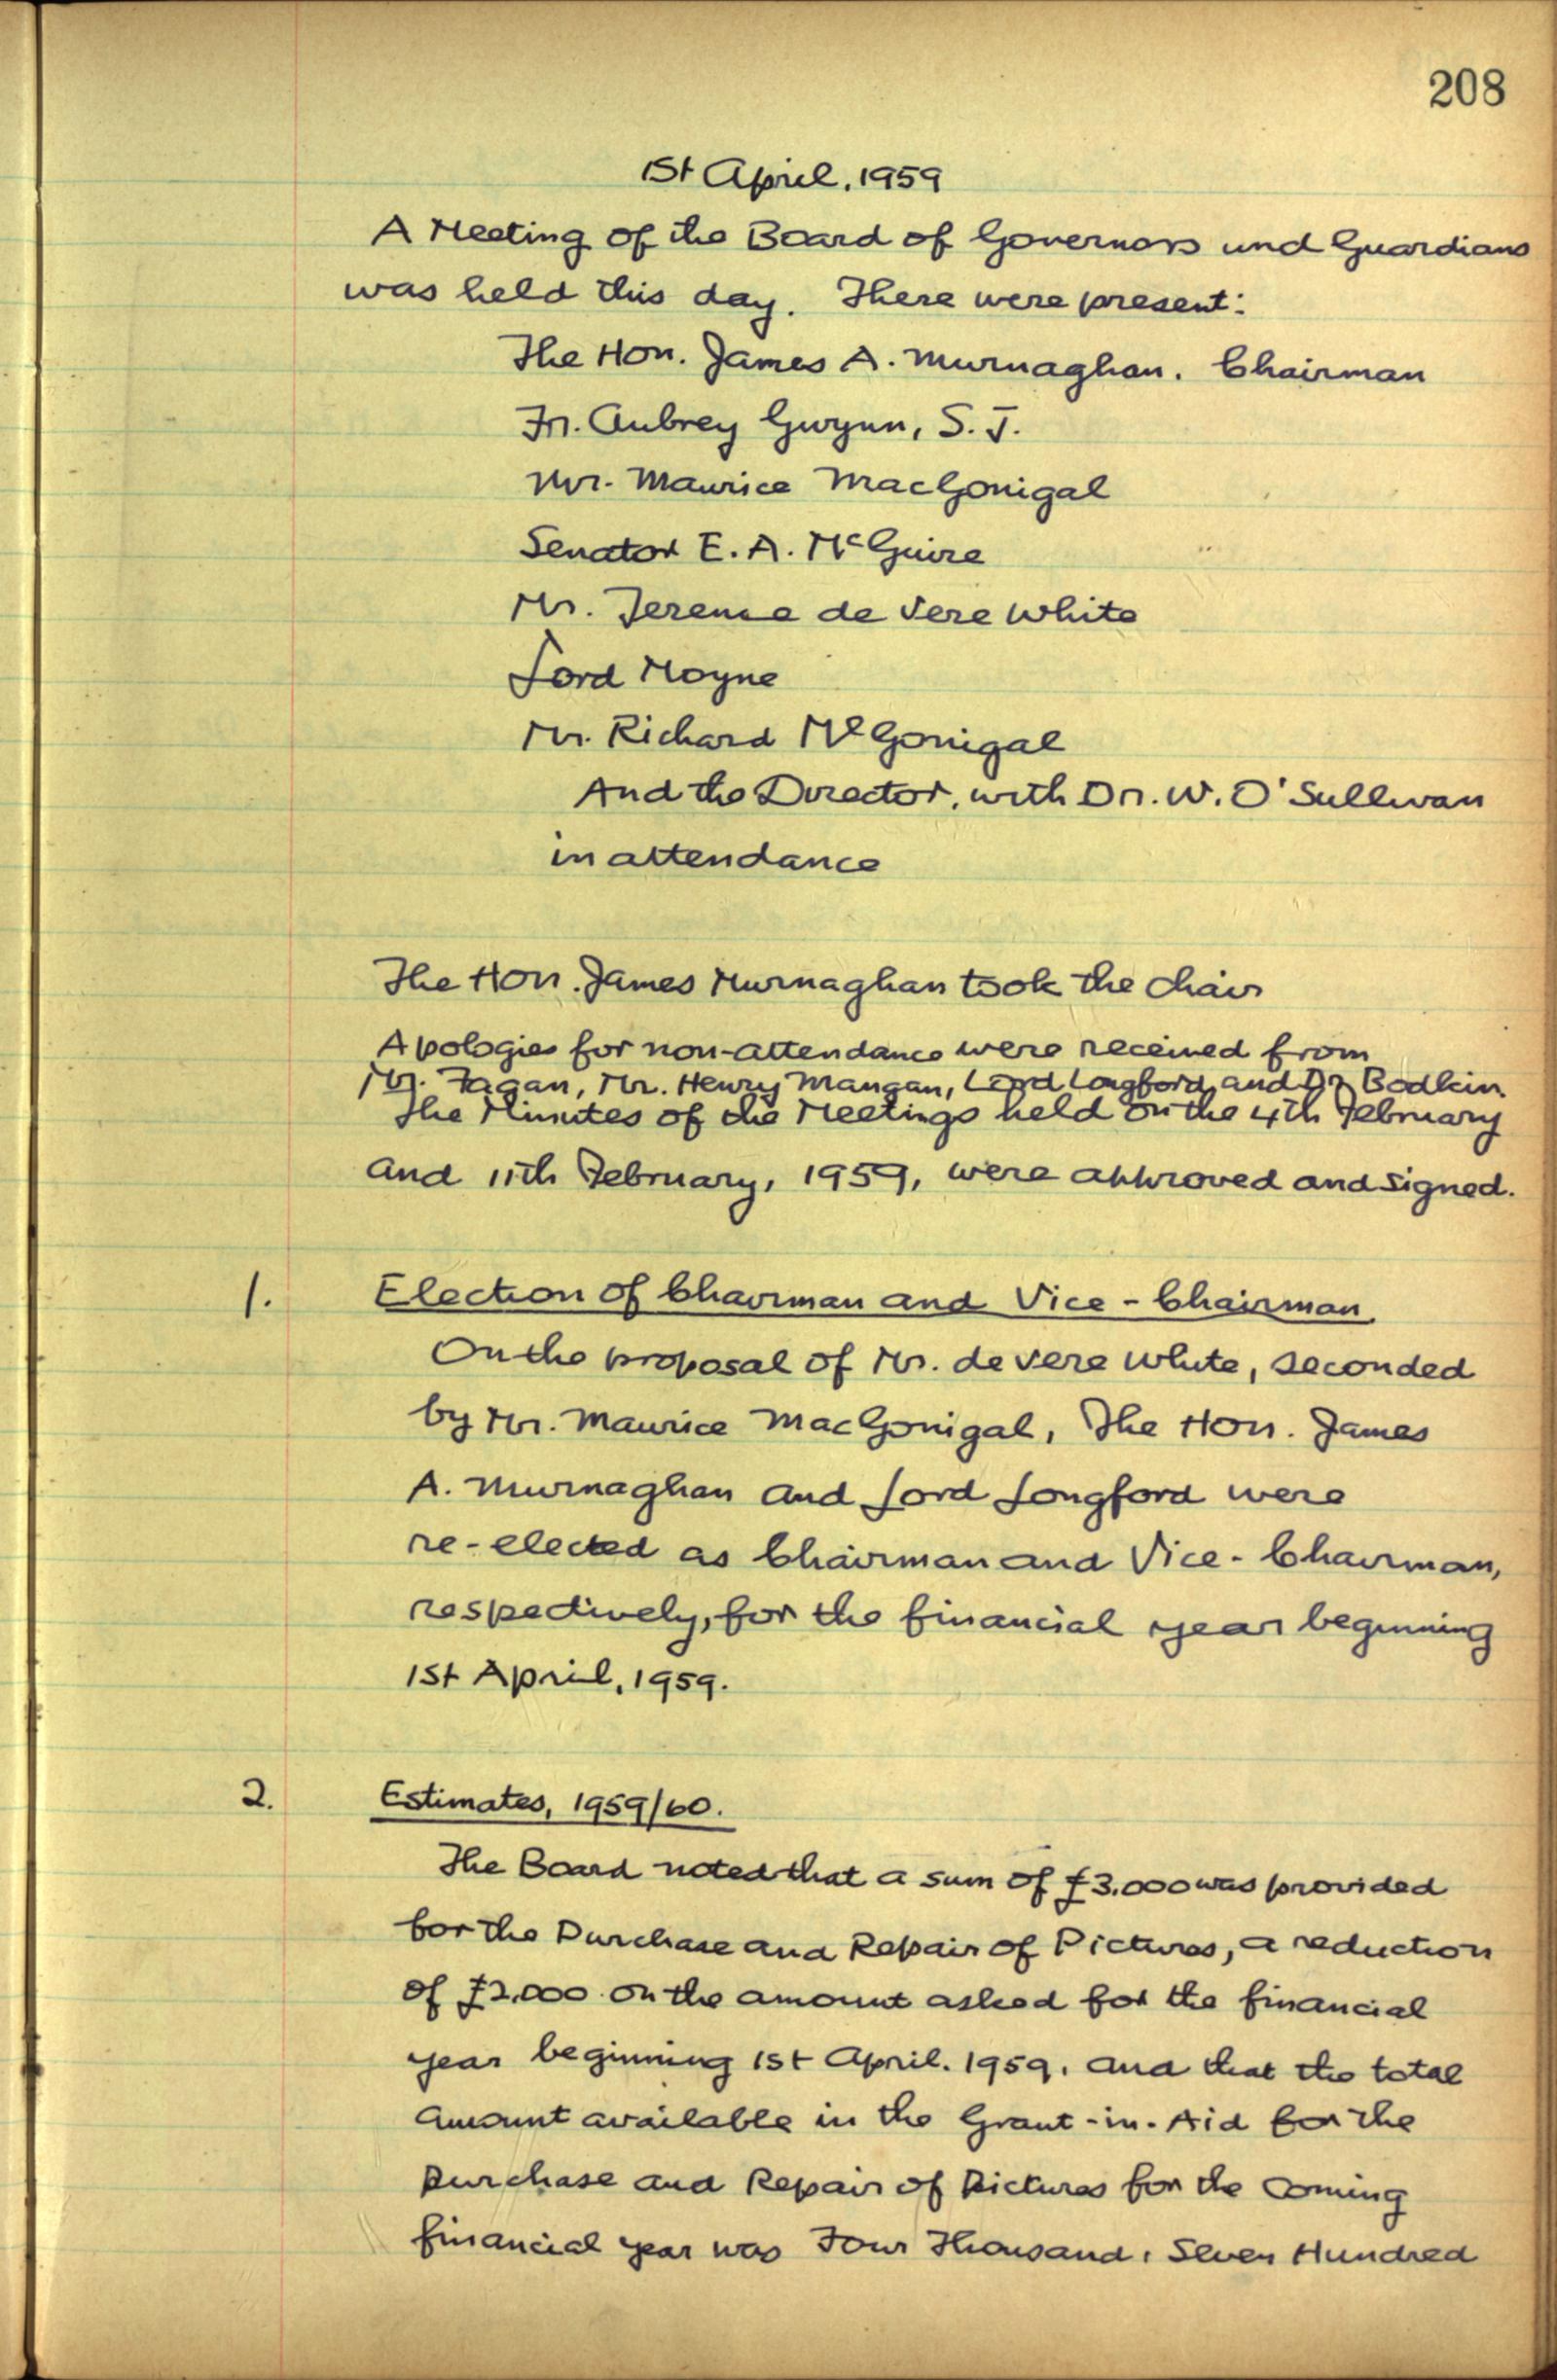 208
1st April, 1959
A Meeting of the Board of Governors and Guardians
was held this day. There were present:
The Hon. James A. Murnaghan. Chairman
Fr. Aubrey Gwynn, S. J.
Mr. Maurice MacGonigal
Senator E. A. McGuire
Mr. Terence de Vere White
Lord Moyne
Mr. Richard McGonigal
And the Director, with Dr. W. O'Sullivan
in attendance
The Hon. James Murnaghan took the chair
Apologies for non-attendance were received from
Mr. Fagan, Mr. Henry Mangan, Lord Longford, and Dr Bodkin.
The Minutes of the Meetings held on the 4th February
and 11th February, 1959, were approved and signed.
1. Election of Chairman and Vice-Chairman.
On the proposal of Mr. de Vere White, seconded
by Mr. Maurice MacGonigal, The Hon. James
A. Murnaghan and Lord Longford were
re-elected as Chairman and Vice-Chairman,
respectively, for the financial year beginning
1st April, 1959.
2. Estimates, 1959/60.
The Board noted that a sum of £3,000 was provided
for the Purchase and Repair of Pictures, a reduction
of £2,000 on the amount asked for the financial
year beginning 1st April. 1959, and that the total
amount available in the Grant-in-Aid for the
Purchase and Repair of Pictures for the coming
financial year was Four Thousand, Seven Hundred